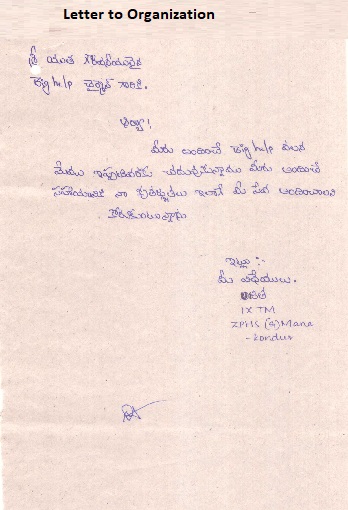 Letter to Organization
శ్రీ యుత గౌరవనీయులైన
Big help చైర్మన్ గారికి.
అయ్యా!
మీరు అందించే Big help వలన
మేము ఇప్పటివరకు చదువుకున్నాము మీరు అందించే
సహాయానికి నా కృతజ్ఞతలు ఇలాగే మీ సేవ అందించాలని
కోరుకుంటున్నాను
ఇట్లు :-
మీ విధేయులు.
IX TM
ZPHS (G) Mana
-kondur